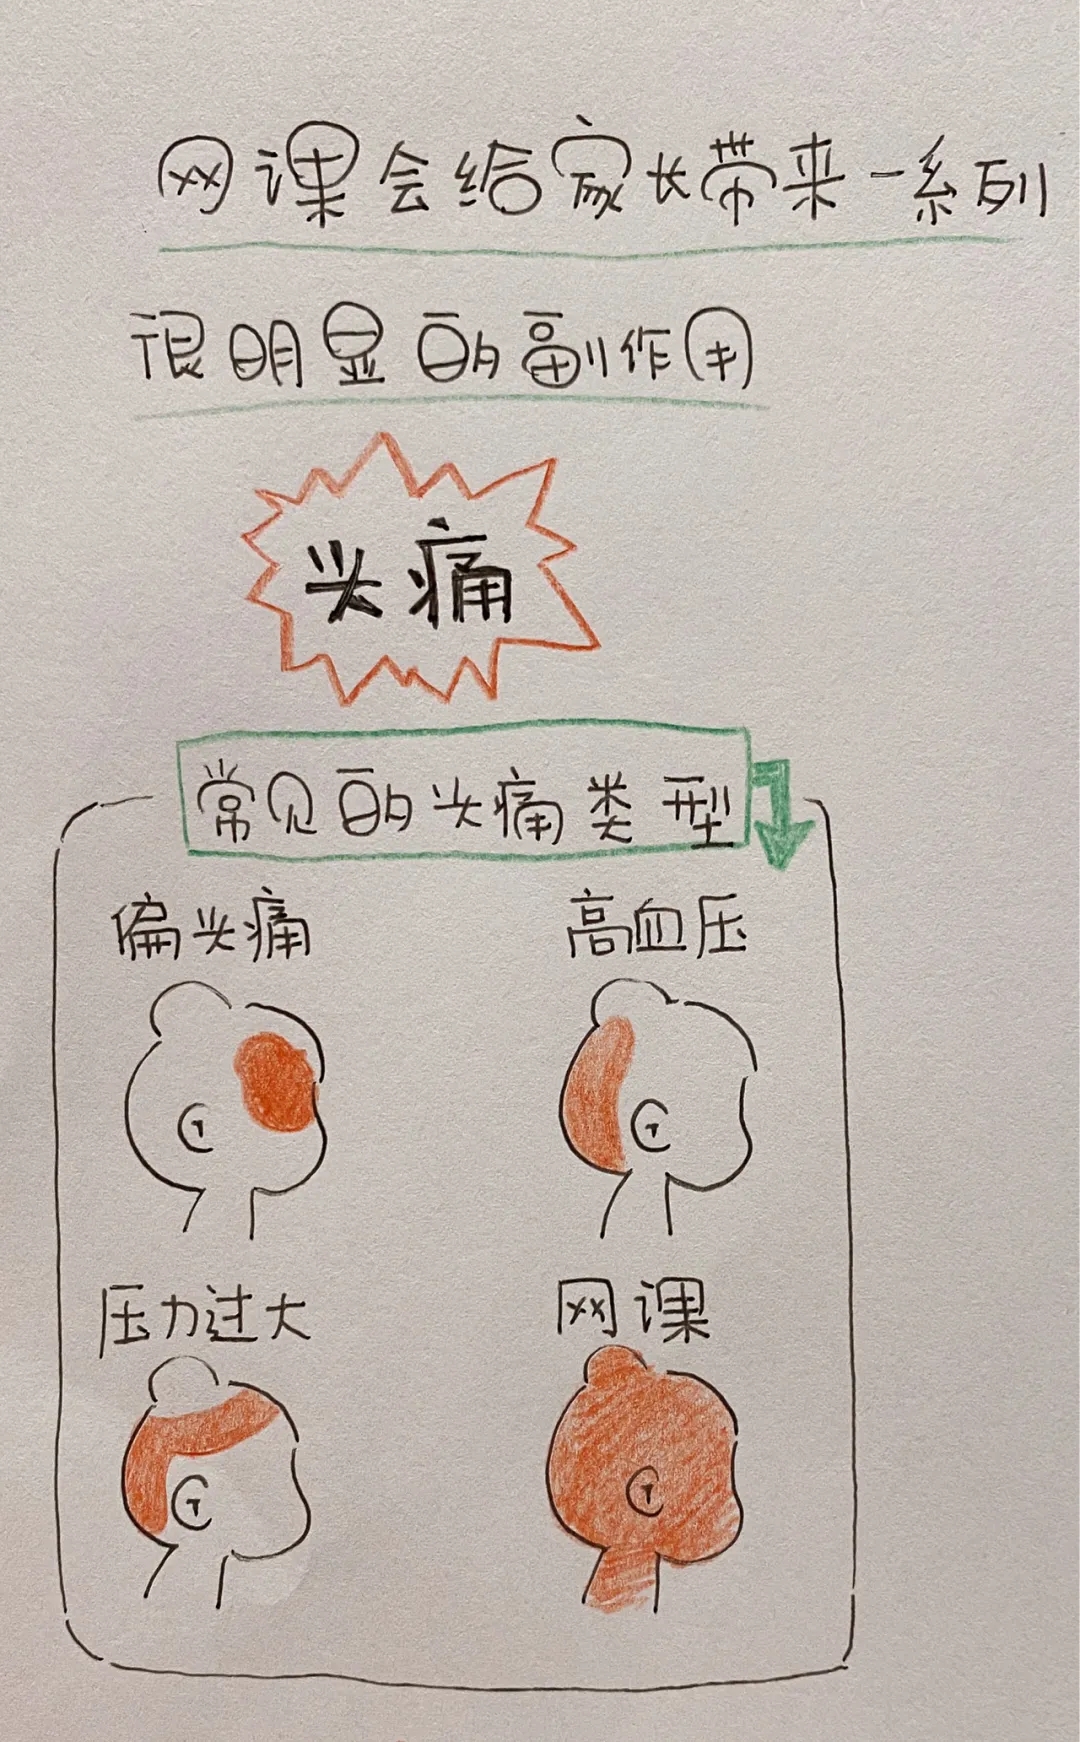 网课会给家长带来一系列
很明显的副作用
头痛
常见的头痛类型
偏头痛 高血压
压力过大 网课